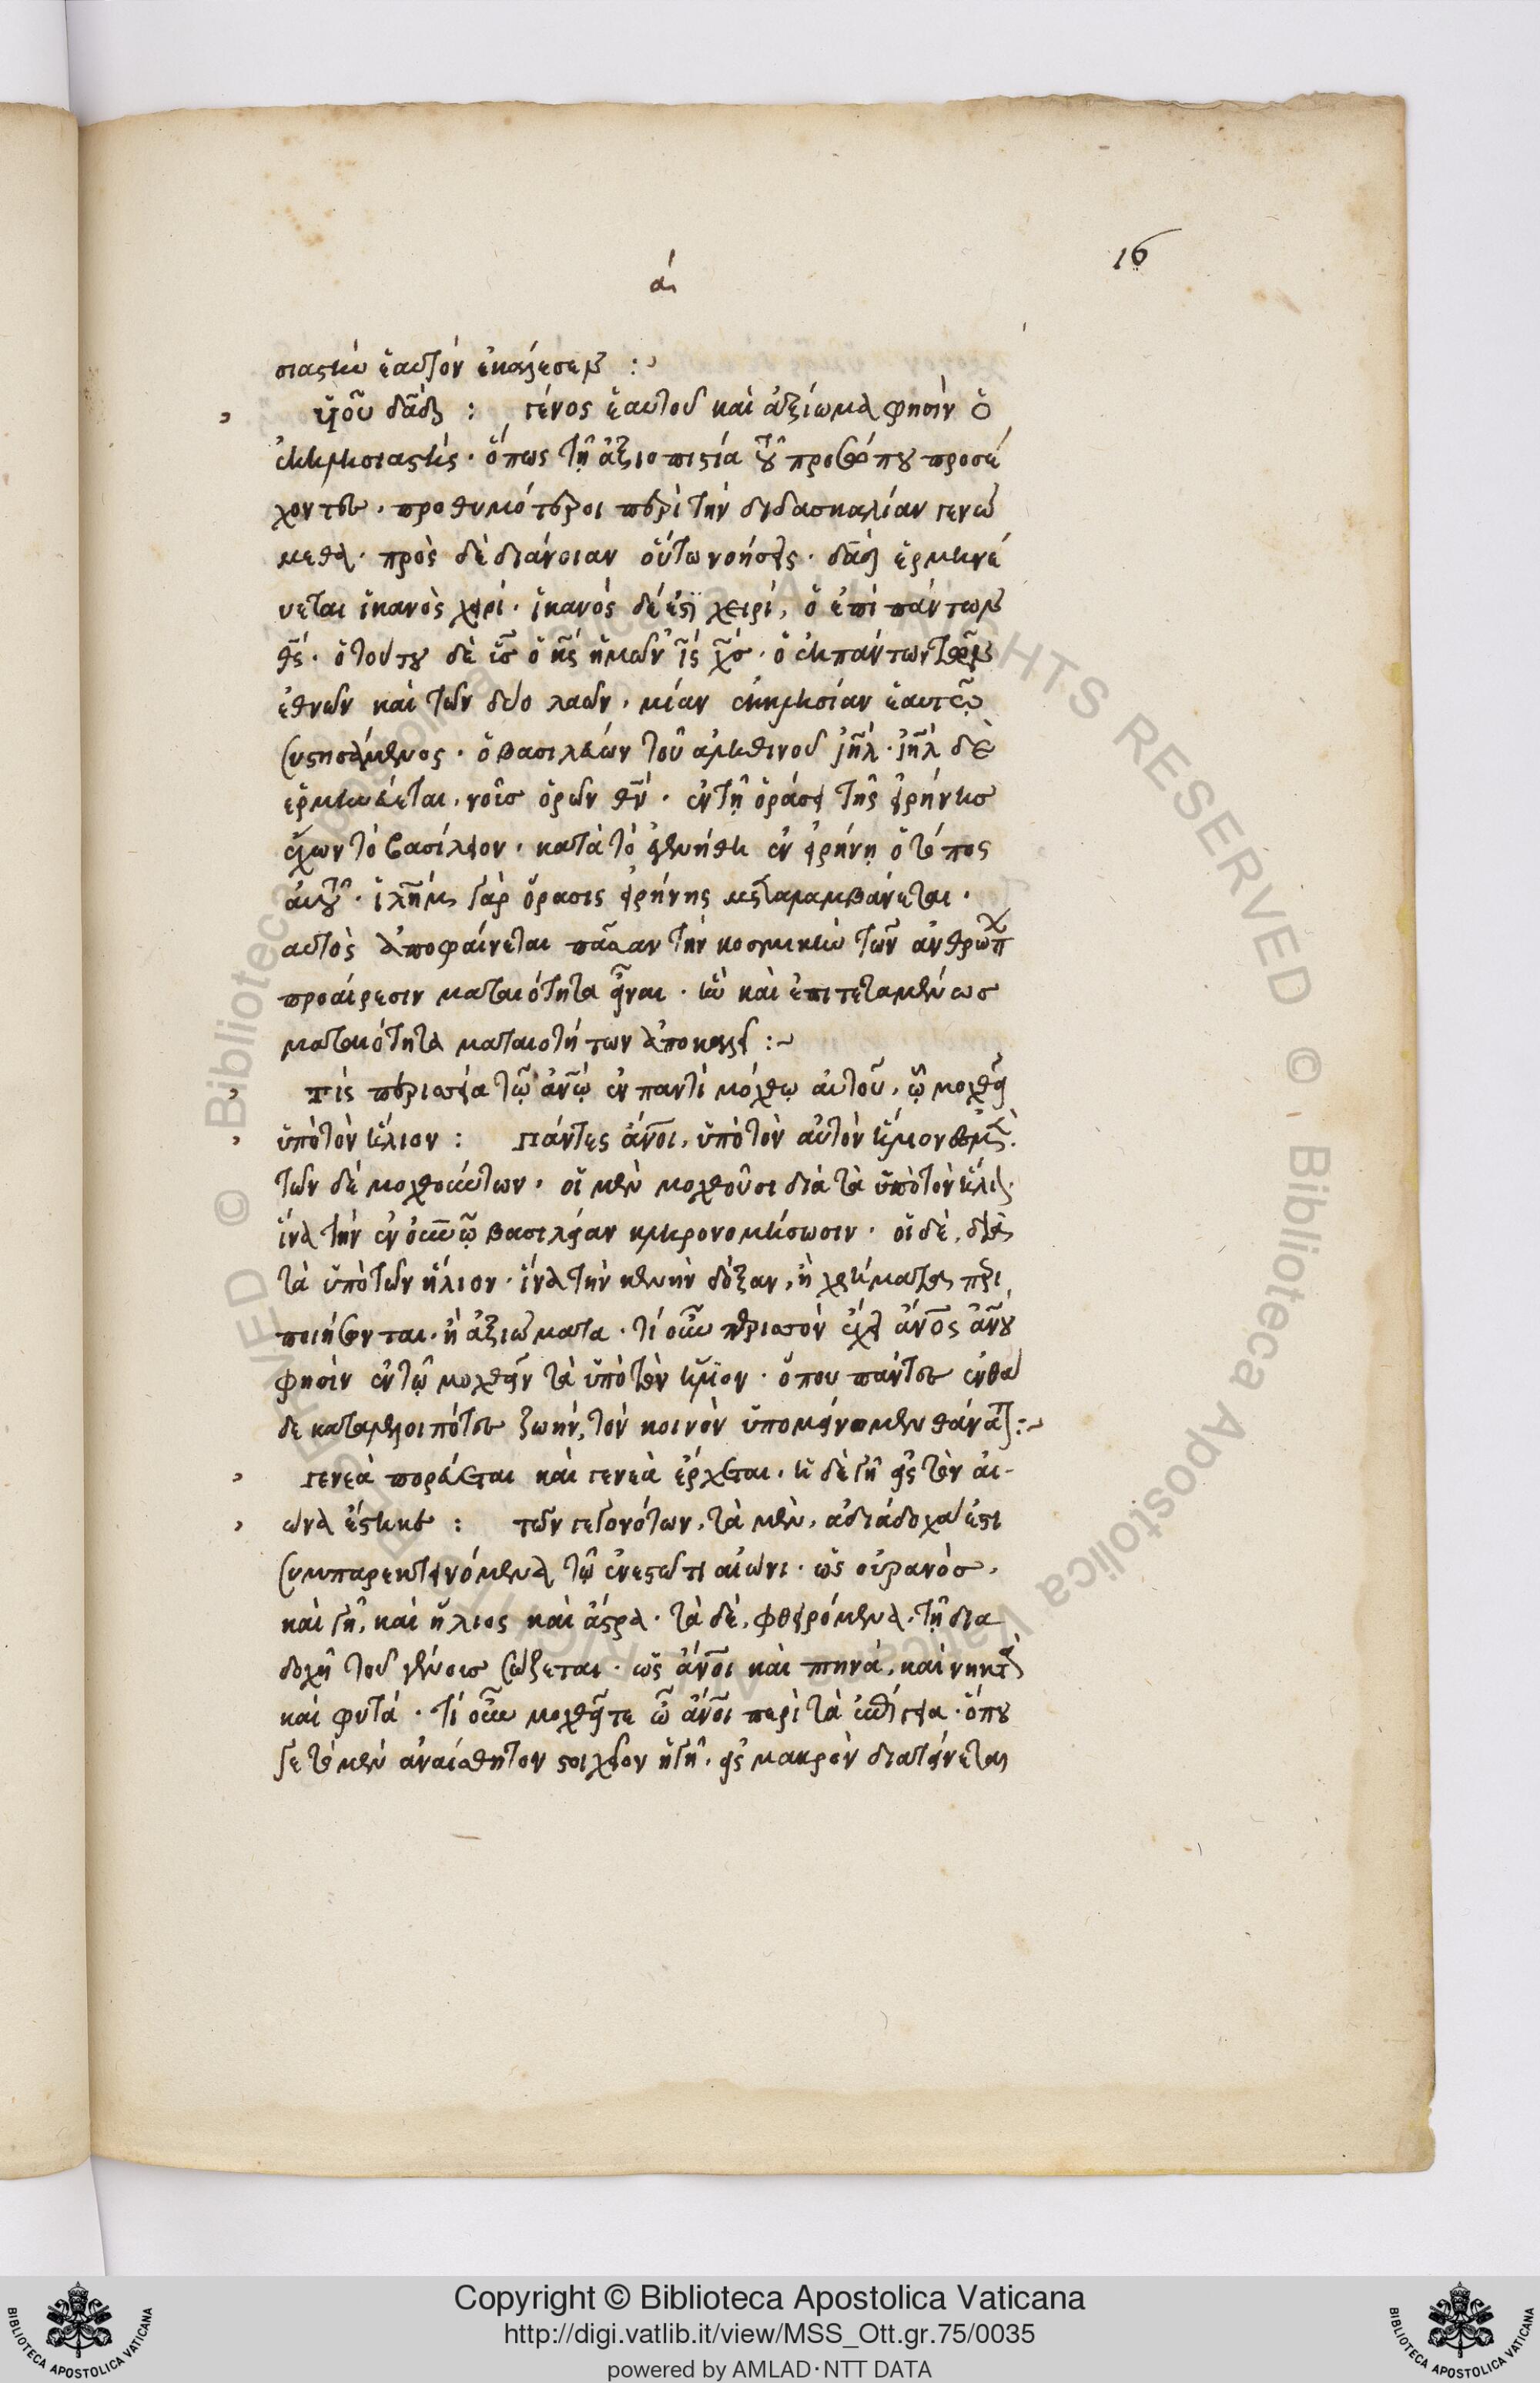 16
ά
σιαστὴν ἑαυτὸν ἐκάλεσεν :
υἱοῦ δαδ : γένος ἑαυτοῦ καὶ ἀξίωμα φησὶν ὁ
ἐκκλησιαστής · ὅπως τῇ ἀξιοπιστία τοῦ προσώπου προσέ
χοντες · προθυμότεροι περὶ τὴν διδασκαλίαν γενώ
μεθα · πρὸς δὲ διάνοιαν οὕτω νοήσεις · δαδ ἑρμηνέ
υεται ἱκανὸς χειρί · ἱκανὸς δέ ἐστι χειρί, ὁ ἐπὶ πάντων
θς · ὁ τούτου δὲ υς ὁ κς ἡμῶν ις χς · ὁ ἐκ πάντων τῶν
ἐθνῶν καὶ τῶν δύο λαῶν, μίαν ἐκκλησίαν ἑαυτῷ
συστησάμενος · ὁ βασιλεύων τοῦ ἀληθινοῦ ιηλ · ιηλ δὲ
ἑρμηνεύεται, νοῦς ὁρῶν θν · ἐν τῇ ὁράσει τῆς εἰρήνης
ἔχων τὸ βασίλειον · κατὰ τὸ ἐγενήθη ἐν εἰρήνῃ ὁ τόπος
αὐτοῦ · ιλημ γὰρ ὅρασις εἰρήνης μεταλαμβάνεται ·
αὐτὸς ἀποφαίνεται πᾶσαν τὴν κοσμικὴν τῶν ἀνθρώπ
προαίρεσιν ματαιότητα εἶναι · ἣν καὶ ἐπιτεταμένως
ματαιότητα ματαιοτήτων ἀποκαλεῖ :~
τίς περισσεία τῷ ἀνῳ ἐν παντὶ μόχθῳ αὐτοῦ, ᾧ μοχθεῖ
ὑπὸ τὸν ἥλιον : πάντες ἄνοι, ὑπὸ τὸν αὐτὸν ἥλιον ἐσμὲν ·
τῶν δὲ μοχθούντων · οἱ μὲν μοχθοῦσι διὰ τὰ ὑπὸ τὸν ἥλιον ·
ἵνα τὴν ἐν οὐνῷ βασιλείαν κληρονομήσωσιν · οἱ δὲ, διὰ
τὰ ὑπὸ τῶν ἥλιον · ἵνα τὴν κενὴν δόξαν, ἢ χρήματα περι
ποιήσονται · ἢ ἀξιώματα · τί οὖν περισσὸν ἔχει ἄνος ἀνου
φησὶν ἐν τῷ μοχθεῖν τὰ ὑπὸ τὸν ἥλιον · ὅπου πάντες ἐνθά
δε καταλελοιπότες ζωὴν, τὸν κοινὸν ὑπομείνωμεν θάνατ :~
γενεὰ πορεύεται καὶ γενεὰ ἔρχεται · ἡ δὲ γῆ εἰς τὸν αἰ-
ῶνα ἕστηκε : τῶν γεγονότων, τὰ μὲν, ἀδιάδοχά ἐστι
συμπαρεκτεινόμενα τῷ ἐνεστῶτι αἰῶνι · ὡς οὐρανὸς,
καὶ γῆ, καὶ ἥλιος καὶ ἄστρα · τὰ δὲ, φθειρόμενα, τῇ δια
δοχῇ τοῦ γένους σώζεται · ὡς ἄνοι καὶ πτηνά, καὶ νηκτὰ
καὶ φυτά · τί οὖν μοχθεῖτε ὦ ἄνοι περὶ τὰ ἐπίγεια · ὅπου
γε τὸ μὲν ἀναίσθητον στοιχεῖον ἡ γῆ, εἰς μακρὸν διατείνεται
Copyright © Biblioteca Apostolica Vaticana
http://digi.vatlib.it/view/MSS_Ott.gr.75/0035
powered by AMLAD·NTT DATA